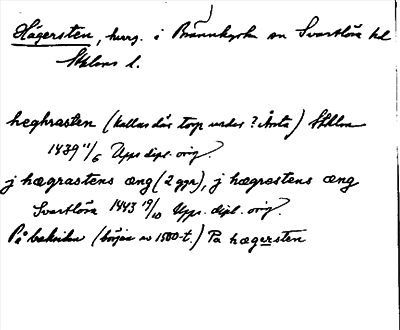 Hägersten, herrg. i Brännkyrka sn Svartlösa hd
Sthlms l.
heghrasten (kallas där torp under ? Årsta) Sthlm
1439 11/6 Upps dipl. orig.
j hægrastens æng (2 ggr), j hægrastens æng
Svartlösa 1443 19/10 Upps. dipl. orig.
På baksidan (början av 1500-t.) Pa hægersten